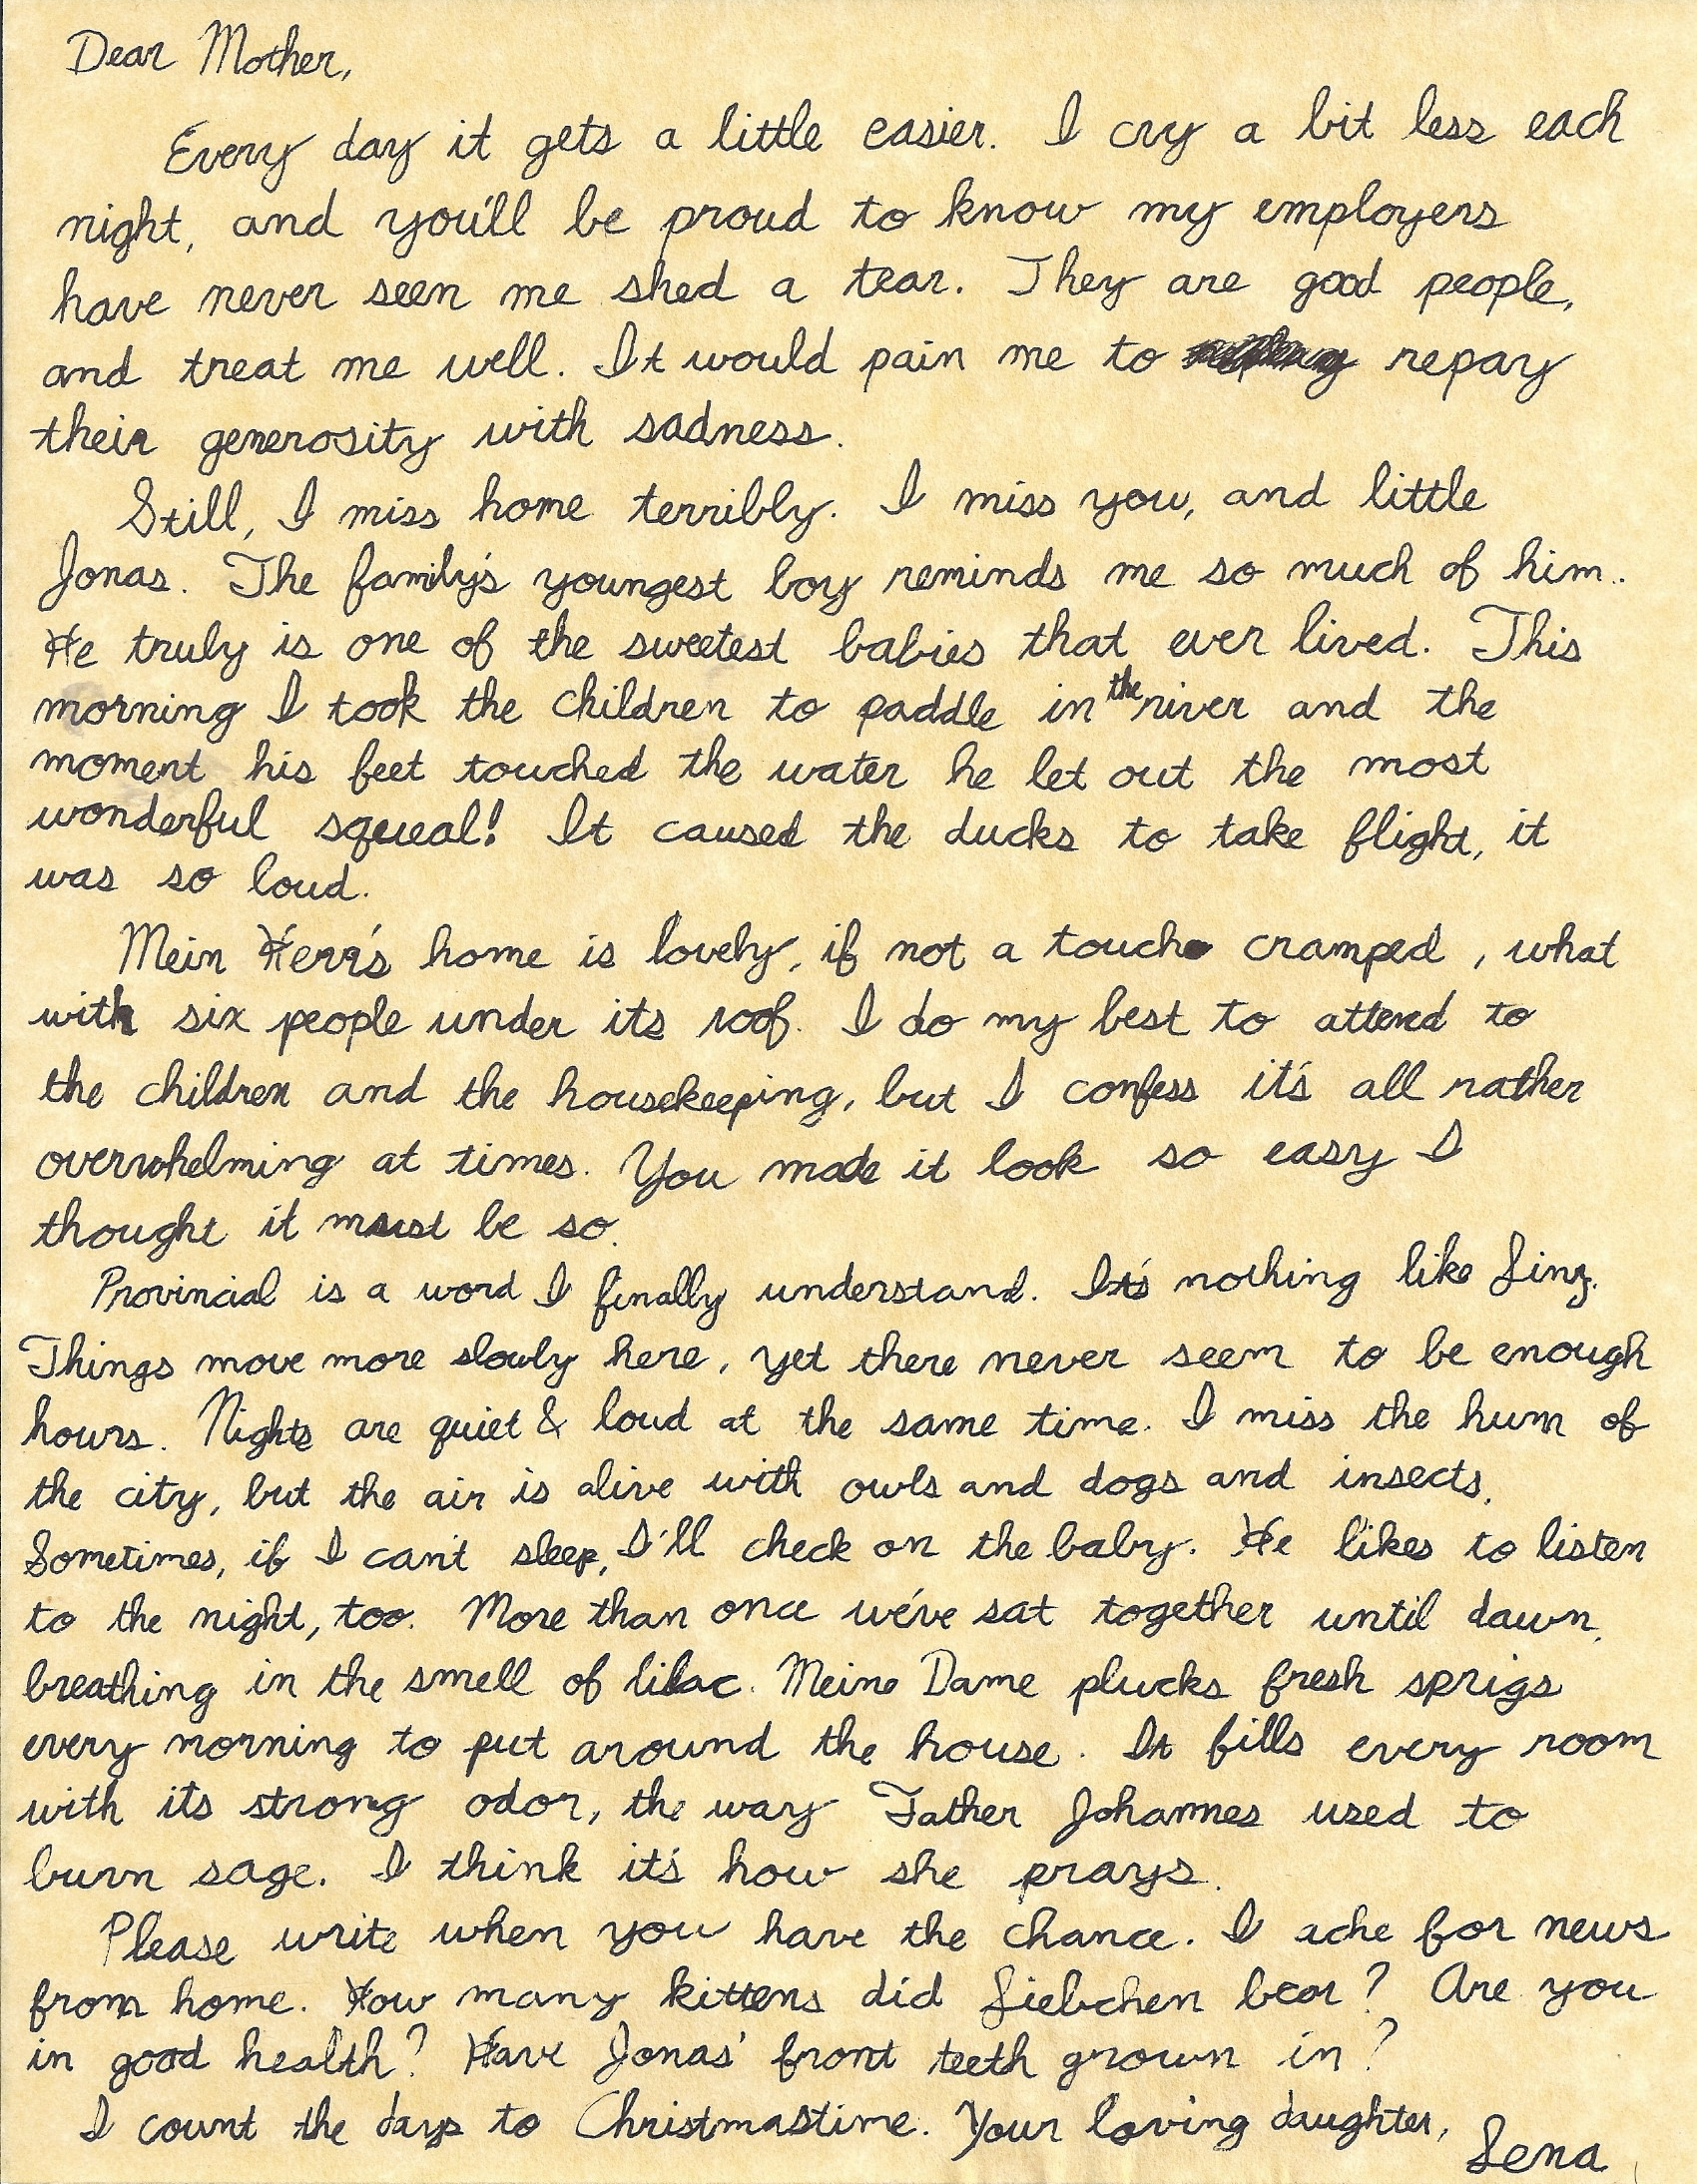 Dear Mother,
Every day it gets a little easier. I cry a bit less each
night, and you'll be proud to know my employers
have never seen me shed a tear. They are good people,
and treat me well. It would pain me to repay
their generosity with sadness.
Still, I miss home terribly. I miss you, and little
Jonas. The family's youngest boy reminds me so much of him.
He truly is one of the sweetest babies that ever lived. This
morning I took the children to paddle in the river and the
moment his feet touched the water he let out the most
wonderful squeal! It caused the ducks to take flight, it
was so loud.
Mein Herr's home is lovely, if not a touch cramped, what
with six people under its roof. I do my best to attend to
the children and the housekeeping, but I confess it's all rather
overwhelming at times. You made it look so easy I
thought it must be so.
Provincial is a word I finally understand. It's nothing like Linz.
Things move more slowly here, yet there never seem to be enough
hours. Nights are quiet & loud at the same time. I miss the hum of
the city, but the air is alive with owls and dogs and insects.
Sometimes, if I can't sleep, I'll check on the baby. He likes to listen
to the night, too. More than once we've sat together until dawn,
breathing in the smell of lilac. Meine Dame plucks fresh sprigs
every morning to put around the house. It fills every room
with its strong odor, the way Father Johannes used to
burn sage. I think it's how she prays.
Please write when you have the chance. I ache for news
from home. How many kittens did Liebchen bear? Are you
in good health? Have Jonas' front teeth grown in?
I count the days to Christmastime. Your loving daughter,
Lena